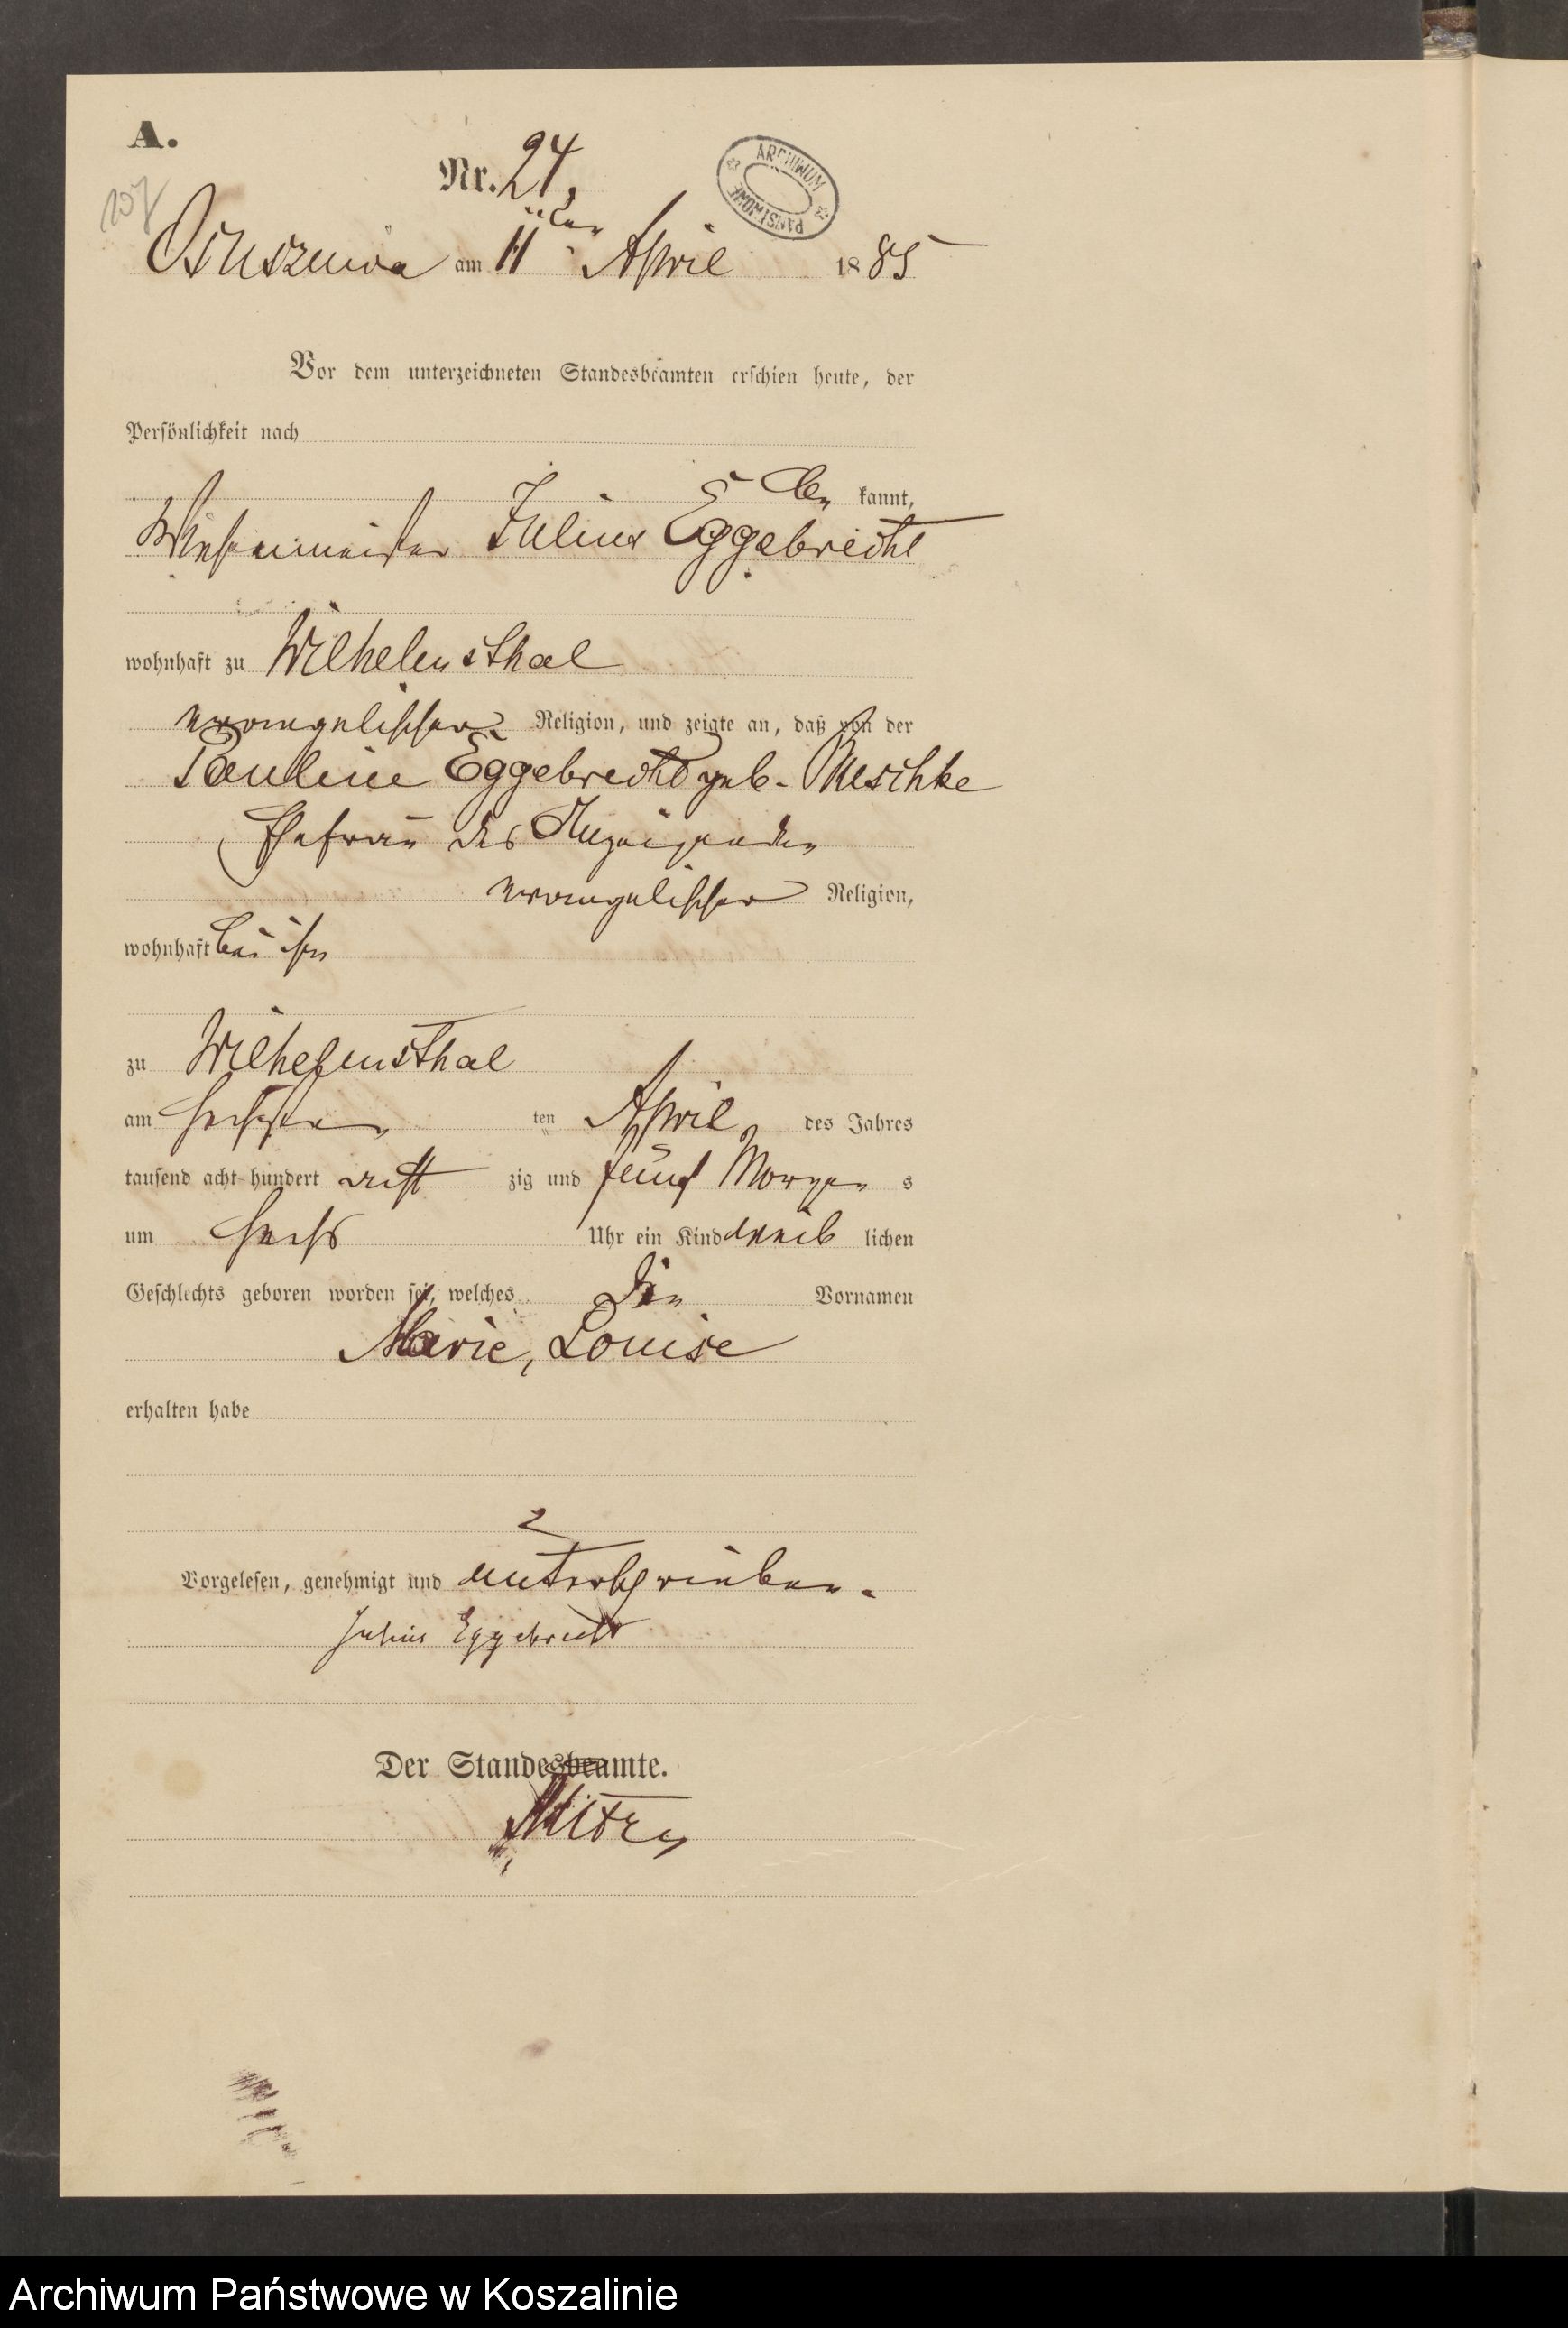 A.
Nr. 24.
207
ARCHIWUM PAŃSTWOWE
am 11ten April 1885
Vor dem unterzeichneten Standesbeamten erschien heute, der
Persönlichkeit nach
be kannt,
Wiesenmeister Julius Eggebrecht
wohnhaft zu Wilhelmsthal
evangelischer Religion, und zeigte an, daß von der
Pauline Eggebrecht geb.
Ehefrau des Anzeigenden
evangelischer Religion,
wohnhaft bei ihm
zu Wilhelmsthal
am sechsten ten April des Jahres
tausend acht hundert acht zig und fünf Morgen s
um sechs Uhr ein Kind weib lichen
Geschlechts geboren worden sei, welches die Vornamen
Marie, Louise
erhalten habe
Vorgelesen, genehmigt und unterschrieben.
Julius Eggebrecht
Der Standesbeamte.
Archiwum Państwowe w Koszalinie